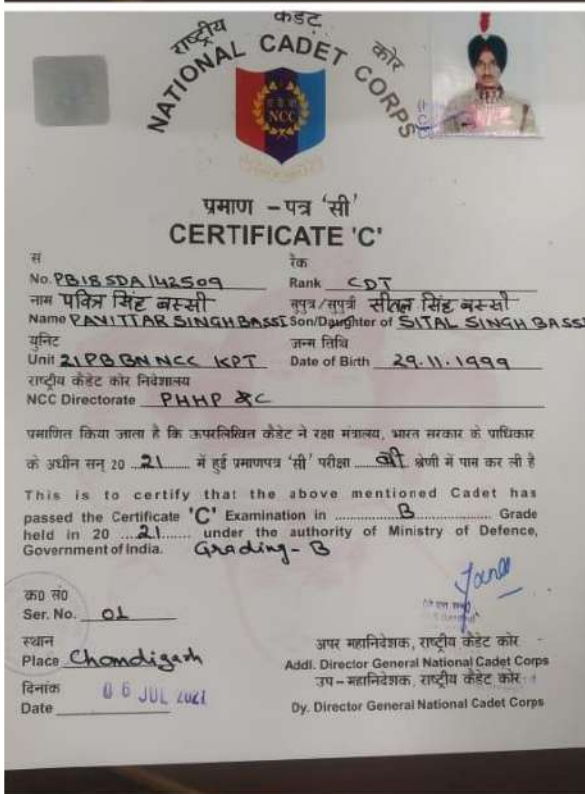 राष्ट्रीय कैडेट कोर
NATIONAL CADET CORPS
रा कै को
NCC
प्रमाण - पत्र 'सी'
CERTIFICATE 'C'
सं रैंक
No. PB18SDA142509 Rank CDT
नाम पवित्र सिंह बस्सी सुपुत्र/सुपुत्री सीतल सिंह बस्सी
Name PAVITTAR SINGH BASSI Son/Daughter of SITAL SINGH BASSI
युनिट जन्म तिथि
Unit 21 PB BN NCC KPT Date of Birth 29.11.1999
राष्ट्रीय कैडेट कोर निदेशालय
NCC Directorate PHHP &C
प्रमाणित किया जाता है कि ऊपरलिखित कैडेट ने रक्षा मंत्रालय, भारत सरकार के प्राधिकार
के अधीन सन् 20 ..21........ में हुई प्रमाणपत्र 'सी' परीक्षा ......बी.. श्रेणी में पास कर ली है
This is to certify that the above mentioned Cadet has
passed the Certificate 'C' Examination in ............B............ Grade
held in 20 ....21....... under the authority of Ministry of Defence,
Government of India. Grading - B
क्र0 सं0
Ser. No. 01
स्थान अपर महानिदेशक, राष्ट्रीय कैडेट कोर
Place Chandigarh Addl. Director General National Cadet Corps
दिनांक उप – महानिदेशक, राष्ट्रीय कैडेट कोर
Date 06 JUL 2021 Dy. Director General National Cadet Corps